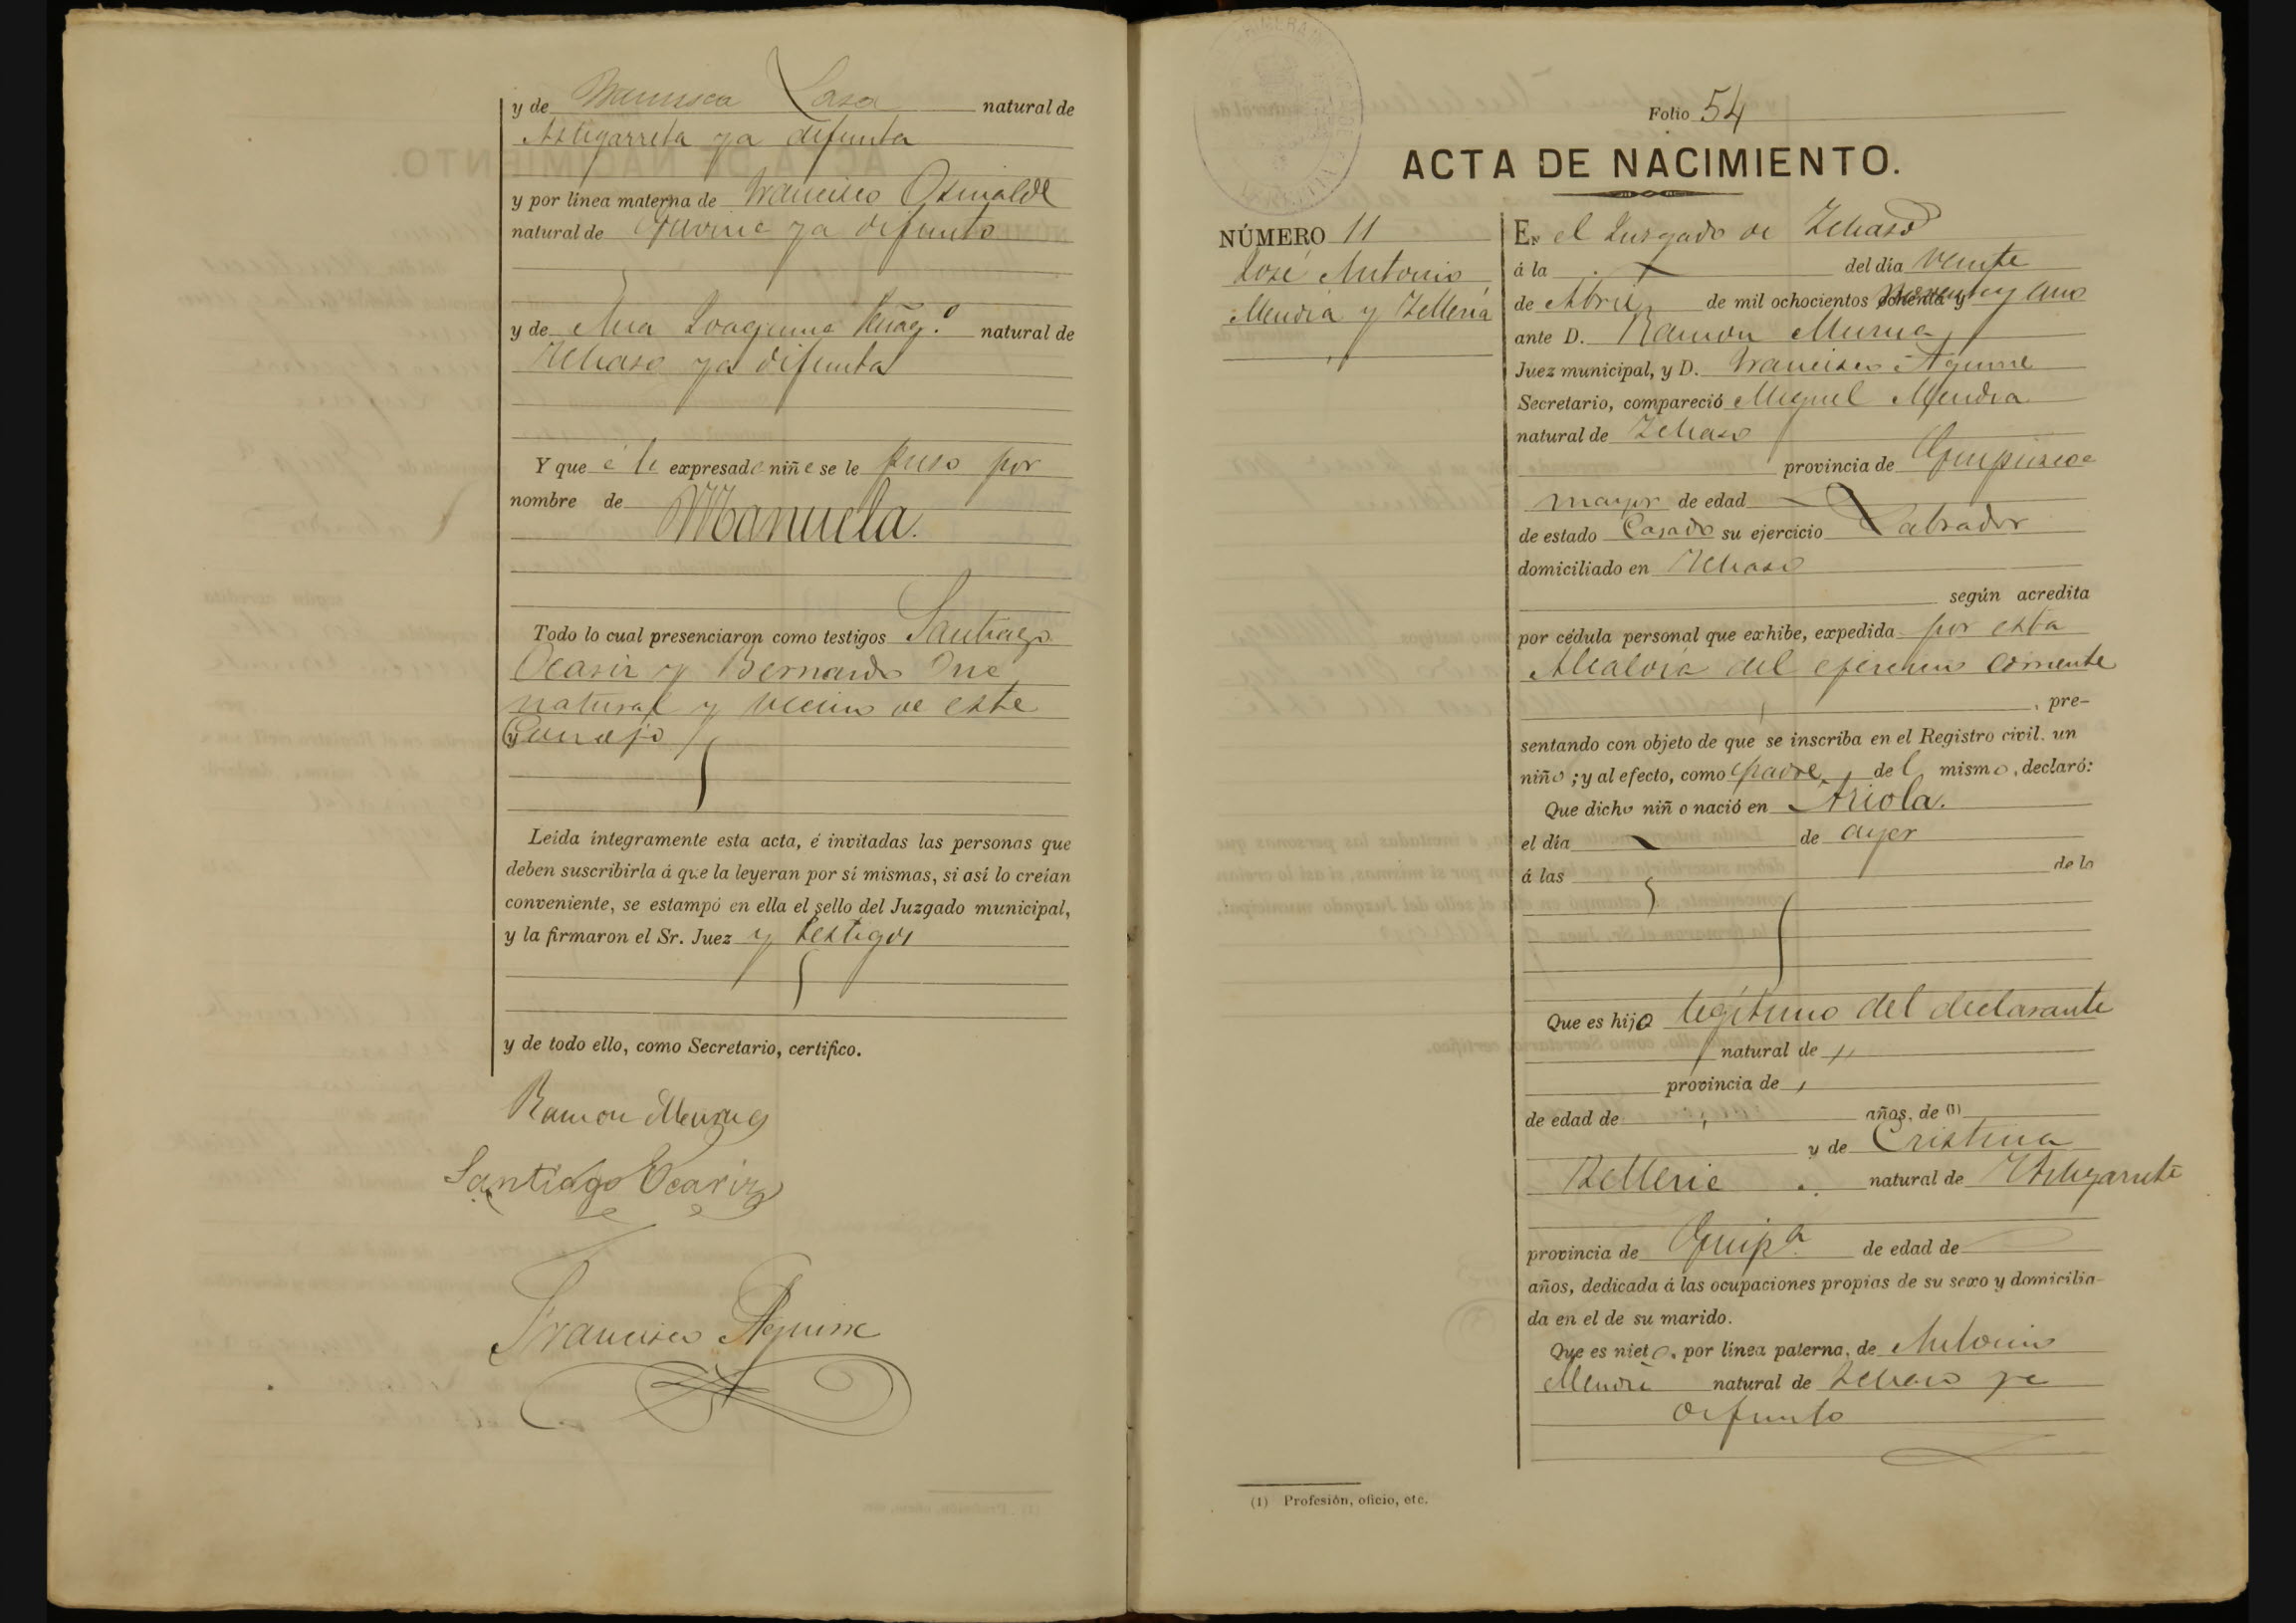 y de Francisca Lasa natural de
Astigarreta ya difunta
y por línea materna de Francisco Osinalde
natural de Gaviria ya difunto
y de Ana Joaquina natural de
Idiazo ya difunta
Y que á la expresada niña se le puso por
nombre de
Manuela.
Todo lo cual presenciaron como testigos Santiago
Ocariz y Bernardo
natural y vecino de este
Concejo
Leída íntegramente esta acta, é invitadas las personas que
deben suscribirla á que la leyeran por sí mismas, si así lo creían
conveniente, se estampó en ella el sello del Juzgado municipal,
y la firmaron el Sr. Juez y testigos
y de todo ello, como Secretario, certifico.
Ramon Murua
Santiago Ocariz
Francisco Aguirre
Folio 54
ACTA DE NACIMIENTO.
NÚMERO 11
José Antonio
Mendia y Telleria
En el Juzgado de
á la del día veinte
de Abril de mil ochocientos ochenta y noventa y uno
ante D. Ramon Murua
Juez municipal, y D. Francisco Aguirre
Secretario, compareció Miguel Mendia
natural de
provincia de Guipuzcoa
mayor de edad
de estado Casado su ejercicio Labrador
domiciliado en
según acredita
por cédula personal que exhibe, expedida por esta
Alcaldía del ejercicio corriente
, pre-
sentando con objeto de que se inscriba en el Registro civil. un
niño; y al efecto, como padre del mismo, declaró:
Que dicho niño nació en Ariola.
el día de ayer
á las de la
Que es hijo legítimo del declarante
natural de "
provincia de "
de edad de años, de (1)
y de Cristina
Telleria natural de Astigarreta
provincia de Guipa. de edad de
años, dedicada á las ocupaciones propias de su sexo y domicilia-
da en el de su marido.
Que es nieto, por línea paterna, de Antonio
Mendia natural de ya
difunto
(1) Profesión, oficio, etc.